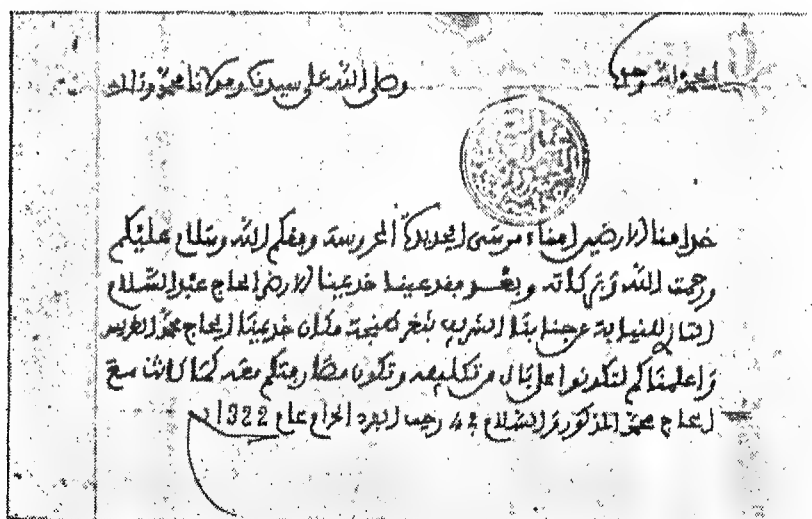 الحمد لله وحده
وصلى الله على سيدنا ومولانا محمد وءاله
خدامنا الارضين امناء مرسى الجديدة المحروسة وفقكم الله وسلام عليكم
ورحمت الله وبركاته وبعد فقد عينا خديمنا الارضى الحاج عبد السلام
التازي للنيابة عن جنابنا الشريف بثغر طنجة مكان خديمنا الحاج محمد الطريس
واعلمناكم لتكونوا على بال من تكليفه وتكون مطارحتكم معه كما كانت مع
الحاج محمد المذكور والسلام في رجب الفرد الحرام عام 1322